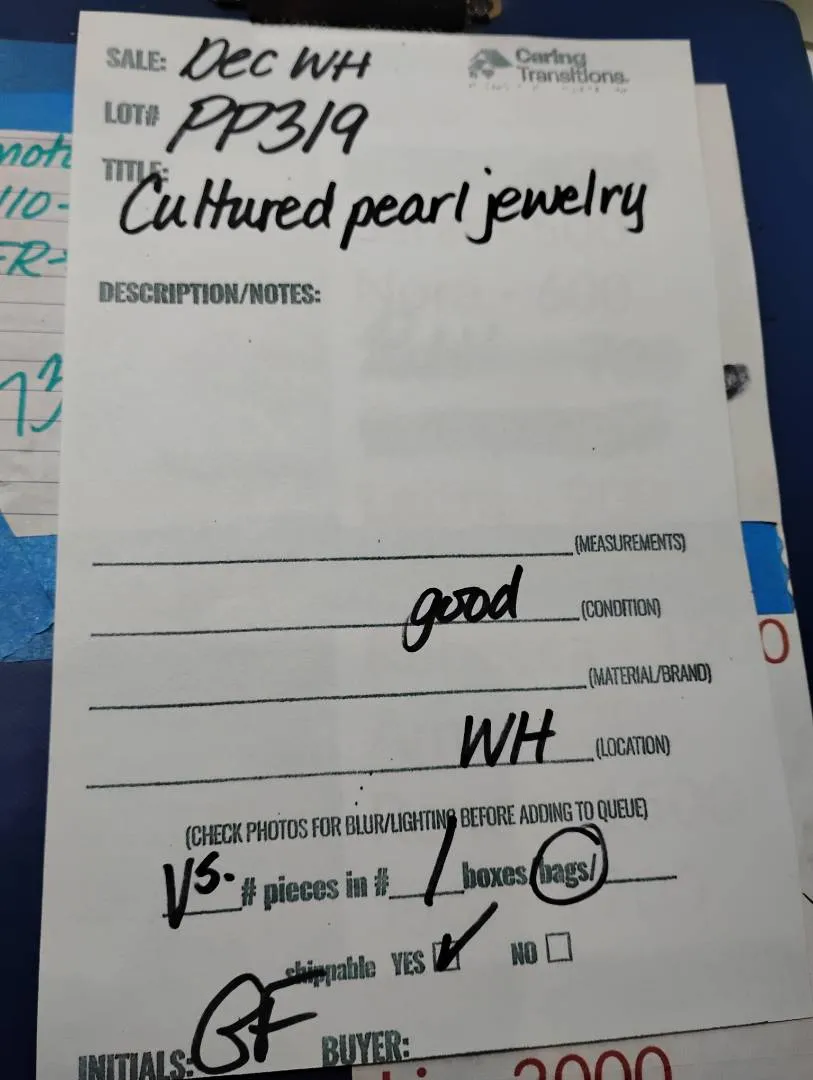 SALE: Dec WH
Caring
Transitions.
LOT# PP319
TITLE:
Cultured pearl jewelry
DESCRIPTION/NOTES:
(MEASUREMENTS)
good (CONDITION)
(MATERIAL/BRAND)
WH (LOCATION)
(CHECK PHOTOS FOR BLUR/LIGHTING BEFORE ADDING TO QUEUE)
VS. # pieces in # 1 boxes/bags/
shippable YES ✓ NO
INITIALS: GF BUYER:
110-